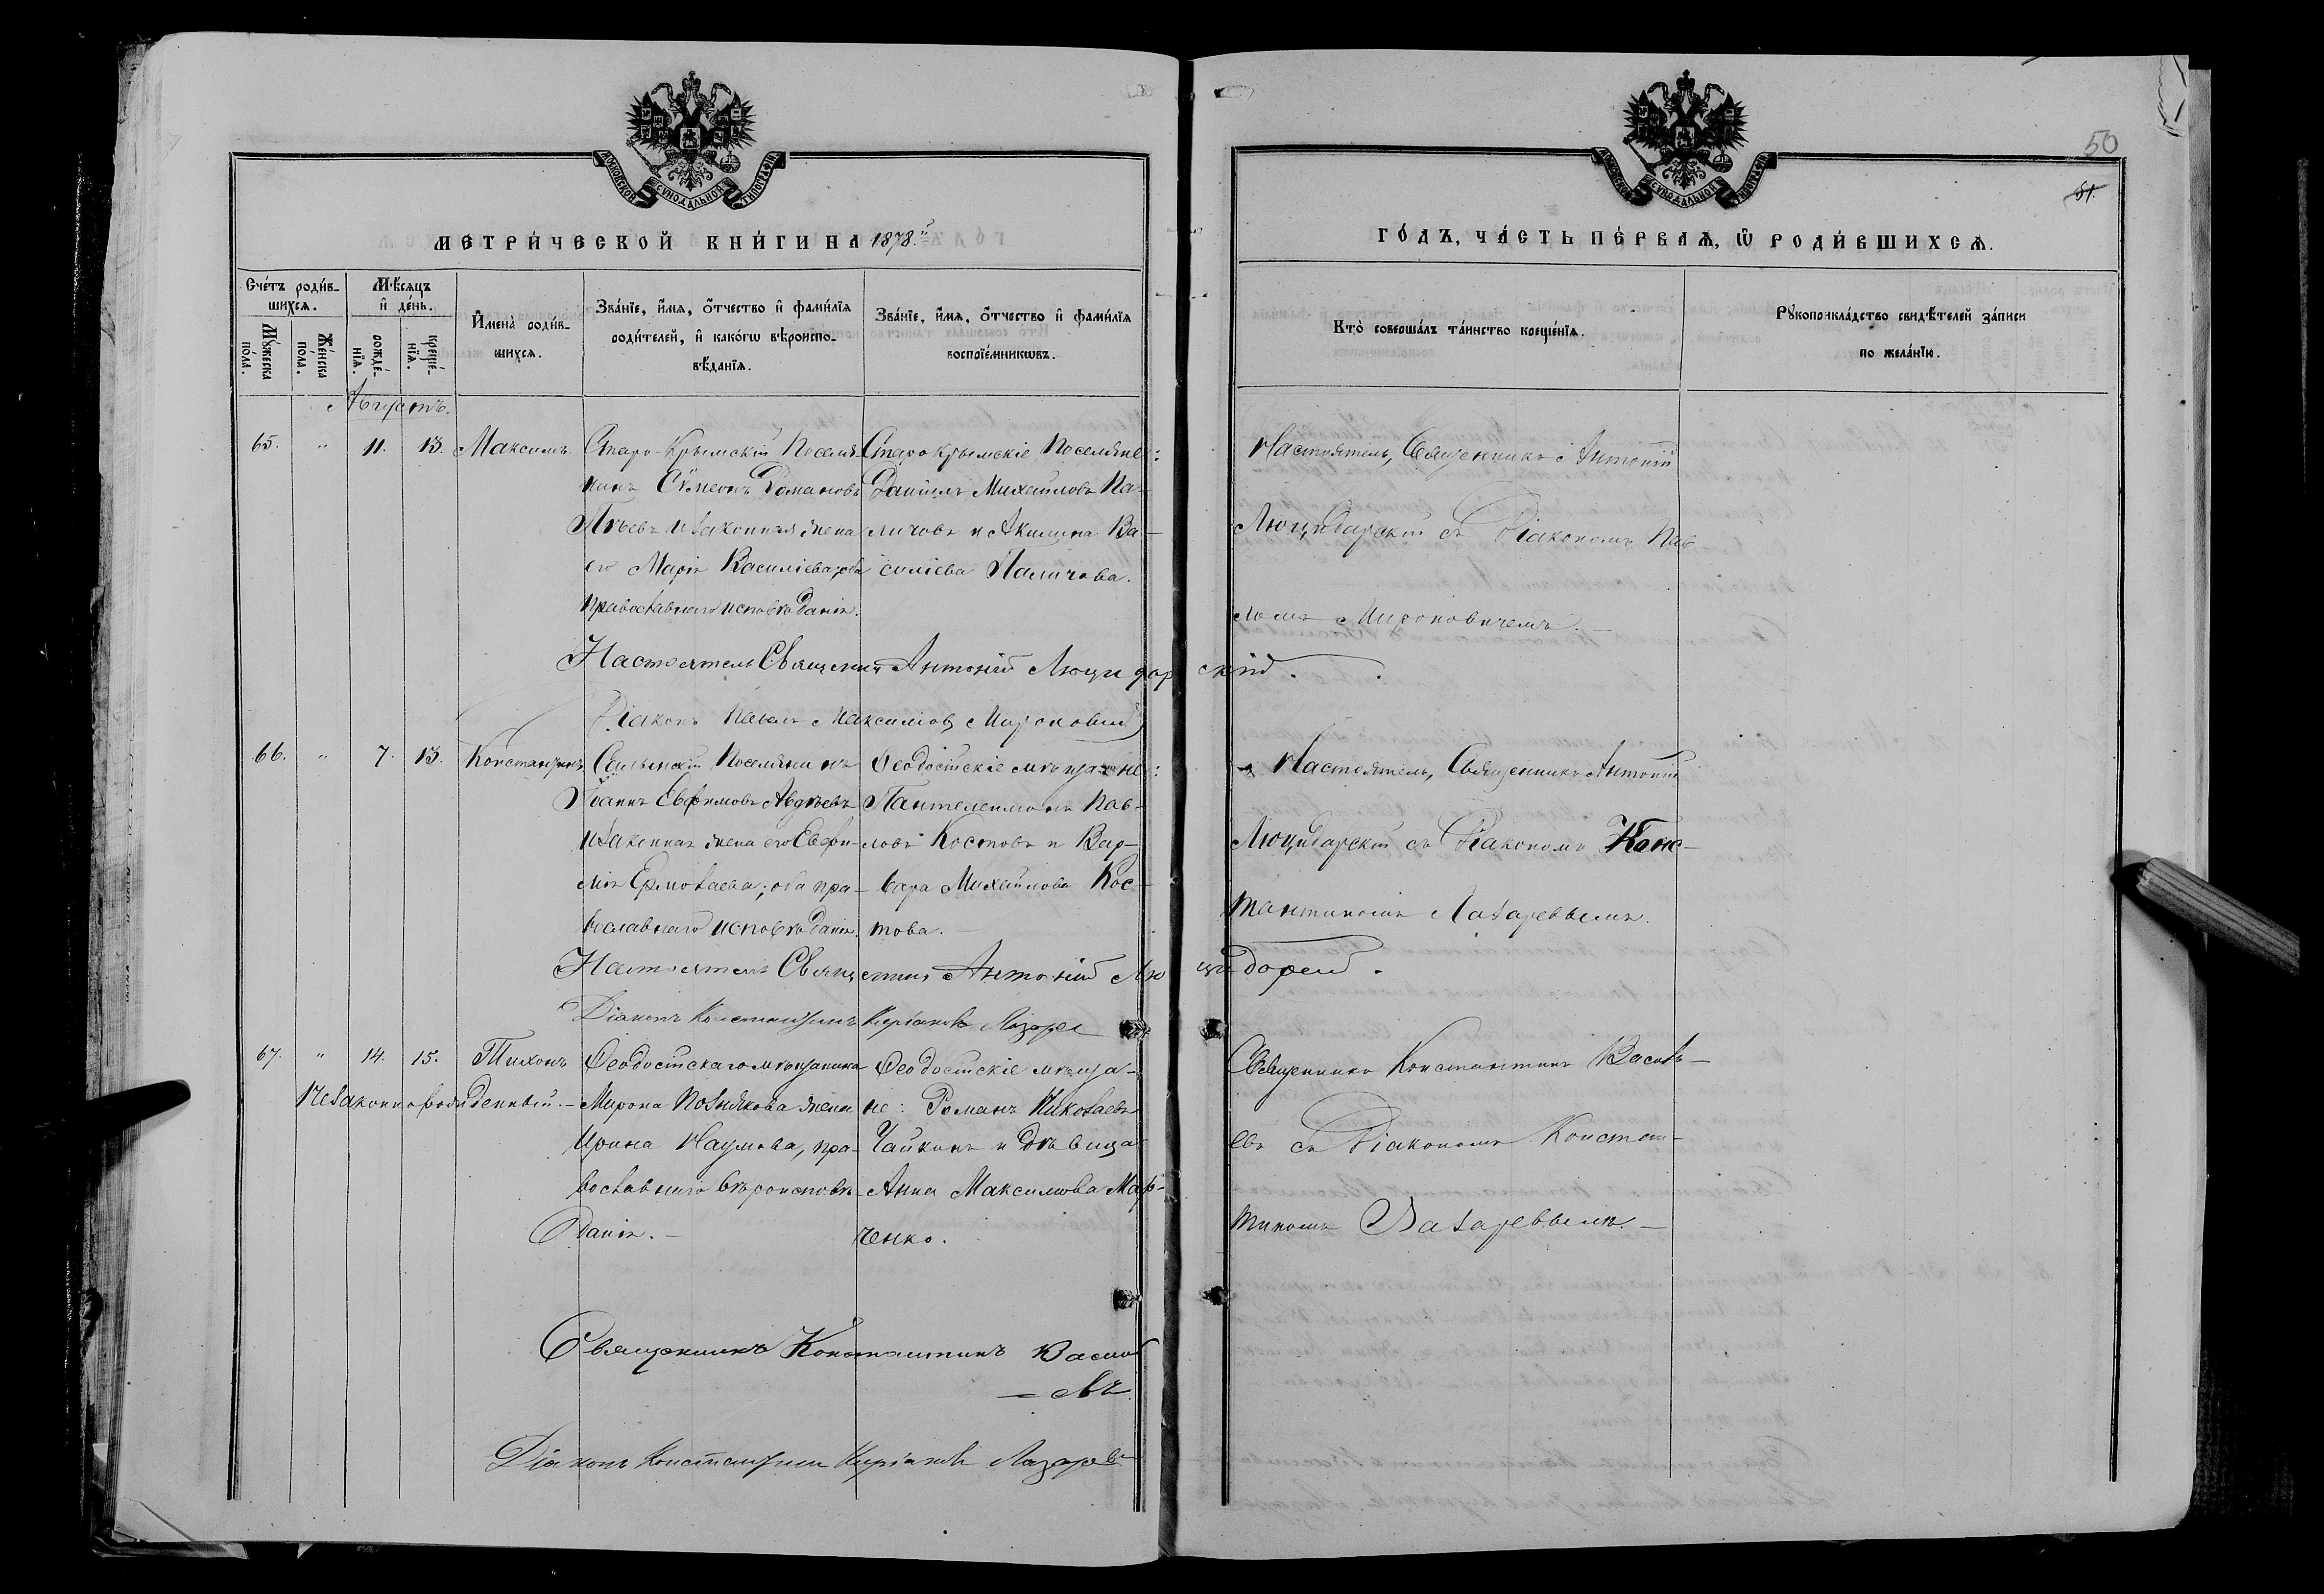 50
51.
МОСКОВСКОЙ СѴНОДАЛЬНОЙ ТИПОГРАФІИ
МОСКОВСКОЙ СѴНОДАЛЬНОЙ ТИПОГРАФІИ
МЕТРИ́ЧЕСКОЙ КНИ́ГИ НА 1878.й
ГО́ДЪ, ЧА́СТЬ ПЕ́РВАѦ, Ѽ РОДИ́ВШИХСѦ.
Сче́тъ роди́в-
шихсѧ.
Мꙋ́жеска по́ла.
Же́нска по́ла.
Мѣ́сѧцъ
и҆ де́нь.
рожде́-
нїѧ.
креще́-
нїѧ.
И҆мена̀ роди́в-
шихсѧ.
Зва́нїе, и҆́мѧ, ѻ҆́тчество и҆ фами́лїѧ
роди́телей, и҆ како́гѡ вѣ̑роиспо-
вѣ́данїѧ.
Зва́нїе, и҆́мѧ, ѻ҆́тчество и҆ фами́лїѧ
воспрїе́мникѡвъ.
Кто̀ соверша́лъ та́инство креще́нїѧ.
Рꙋкоприкла́дство свидѣ́телей за́писи
по жела́нїю.
Августъ.
65. " 11. 13. Максимъ
Старо-Крымскій Поселя-
нинъ Сѵмеонъ Романовъ
и законная жена
его Марія Василіева; оба
православнаго исповѣданія.
Старокрымскіе Поселяне:
Даніилъ Михайловъ Па-
личовъ и Акилина Ва-
силіева Паличова.
Настоятель, Священникъ Антоній
Люцидарскій съ Діакономъ Пав-
ломъ Мироновичемъ.
Настоятель Священникъ Антоній Люцидарскій.
Діаконъ Павелъ Максимовъ Мироновичъ
66. " 7. 13. Константинъ
Поселянинъ
Іоаннъ Евфимовъ Авдѣевъ
и законная жена его Евфи-
мія Ермолаева; оба пра-
вославнаго исповѣданія.
Ѳеодосійскіе мѣщане:
Пантелеимонъ Пав-
ловъ Костовъ и Вар-
вара Михайлова Кос-
това.
Настоятель, Священникъ Антоній
Люцидарскій съ Діакономъ Конс-
тантиномъ Лазаревымъ.
Настоятель Священникъ Антоній Люцидарскій.
Діаконъ Константинъ Киріаковъ Лазаревъ
67. " 14. 15. Тихонъ
Незаконнорожденный.
Ѳеодосійскаго мѣщанина
Мирона Познякова жена
Ирина Наумова, пра-
вославнаго вѣроисповѣ-
данія.
Ѳеодосійскіе мѣща-
не: Романъ Николаевъ
Чайкинъ и дѣвица
Анна Максимова Мар-
ченко.
Священникъ Константинъ Василь-
евъ съ Діакономъ Констан-
тиномъ Лазаревымъ.
Священникъ Константинъ Василь
евъ
Діаконъ Константинъ Киріаковъ Лазаревъ